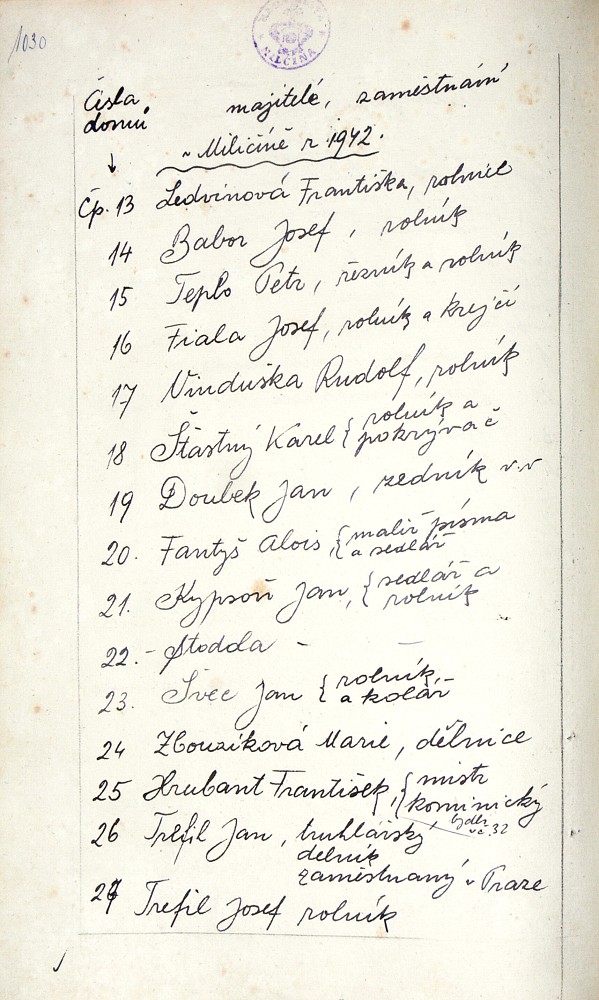 1030
MILČINA
Čísla majitelé, zaměstnání
domů
v Miličíně r 1942.
↓
Čp. 13 Ledvinová Františka, rolnice
14 Babor Josef, rolník
15 Teplo Petr, řezník a rolník
16 Fiala Josef, rolník a krejčí
17 Vinduška Rudolf, rolník
18 Šťastný Karel { rolník a
pokrývač
19 Doubek Jan, zedník v.v
20. Fantyš Alois, { malíř písma
a sedlář
21. Kypsoň Jan, { sedlář a
rolník
22. - stodola - -
23. Švec Jan { rolník,
a kolář -
24 Zbouzíková Marie, dělnice
25 Hrubant František, { mistr
kominický
bydlí
v č. 32
26 Trefil Jan, truhlářský
dělník
zaměstnaný v Praze
27 Trefil Josef rolník